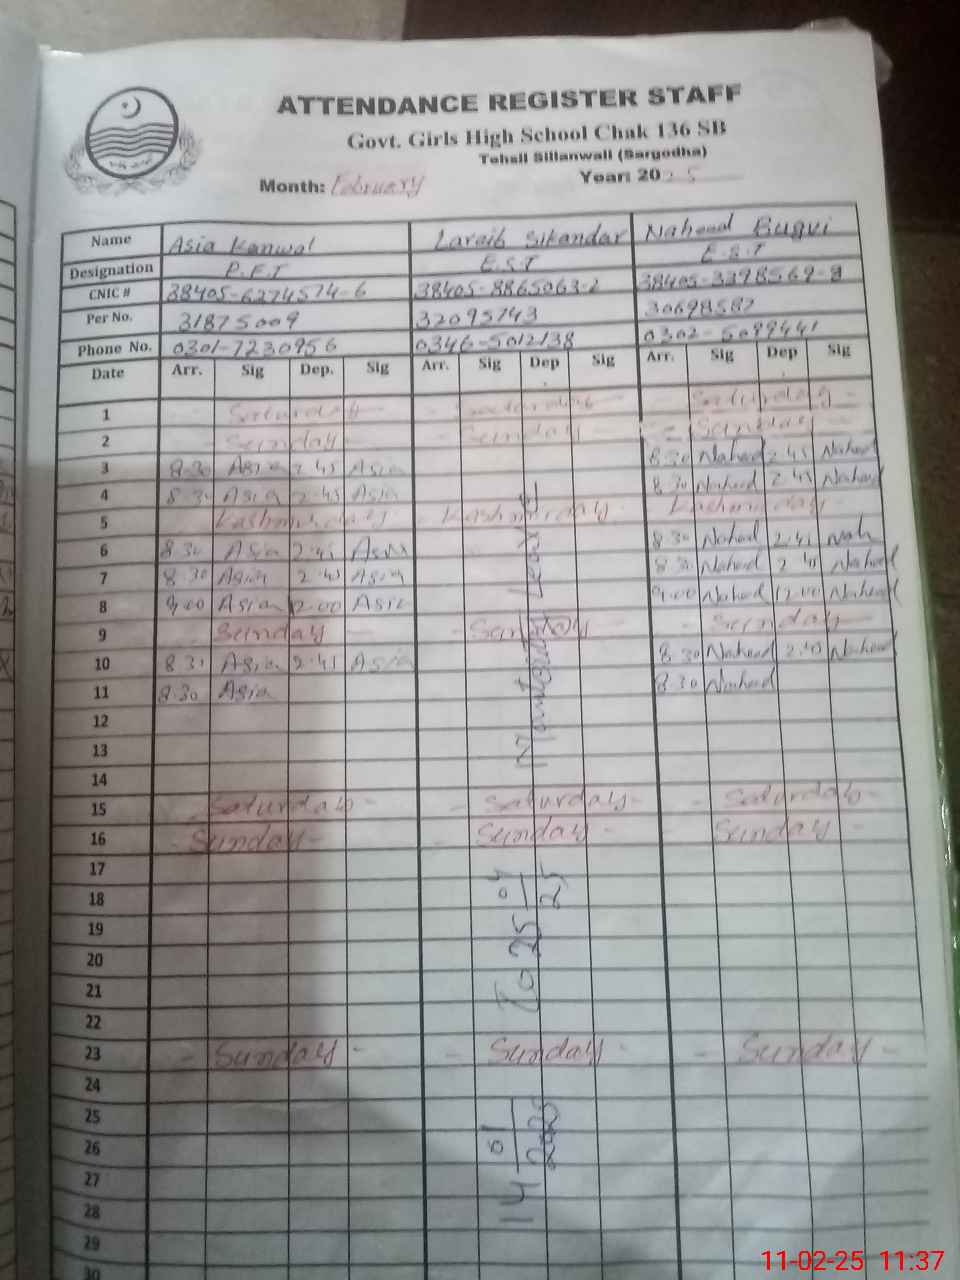 ATTENDANCE REGISTER STAFF
Govt. Girls High School Chak 136 SB
Tehsil Sillanwali (Sargodha)
Month: February Year: 2025
Name Asia Kanwal Laraib Sikandar Naheed Bugvi
Designation P.E.T E.S.T E.S.T
CNIC # 38405-6274574-6 38405-8865063-2 38405-3398569-8
Per No. 31875009 32095743 30698587
Phone No. 0301-7230956 0346-5012138 0302-5099441
Date Arr. Sig Dep. Sig Arr. Sig Dep Sig Arr. Sig Dep Sig
1 Saturday - Saturday - Saturday -
2 - Sunday - Sunday - Sunday -
3 8.30 Asia 2.45 Asia 8.30 Naheed 2.45 Naheed
4 8.30 Asia 2.45 Asia 8.30 Naheed 2.45 Naheed
5 Kashmir day - Kashmir day - Kashmir day -
6 8.30 Asia 2.45 Asia 8.30 Naheed 2.45 Nah
7 8.30 Asia 2.45 Asia 8.30 Naheed 2.40 Naheed
8 9.00 Asia 12.00 Asia 9.00 Naheed 12.00 Naheed
9 - Sunday - - Sunday - Sunday -
10 8.31 Asia 2.45 Asia 8.30 Naheed 2.40 Naheed
11 8.30 Asia 8.30 Naheed
12
13
14
15 Saturday - - Saturday - - Saturday -
16 - Sunday - - Sunday - - Sunday -
17
18
19
20
21
22
23 - Sunday - - Sunday - - Sunday -
24
25
26
27
28
29
30
14 01/2025 To 25 04/25 Leave
11-02-25 11:37